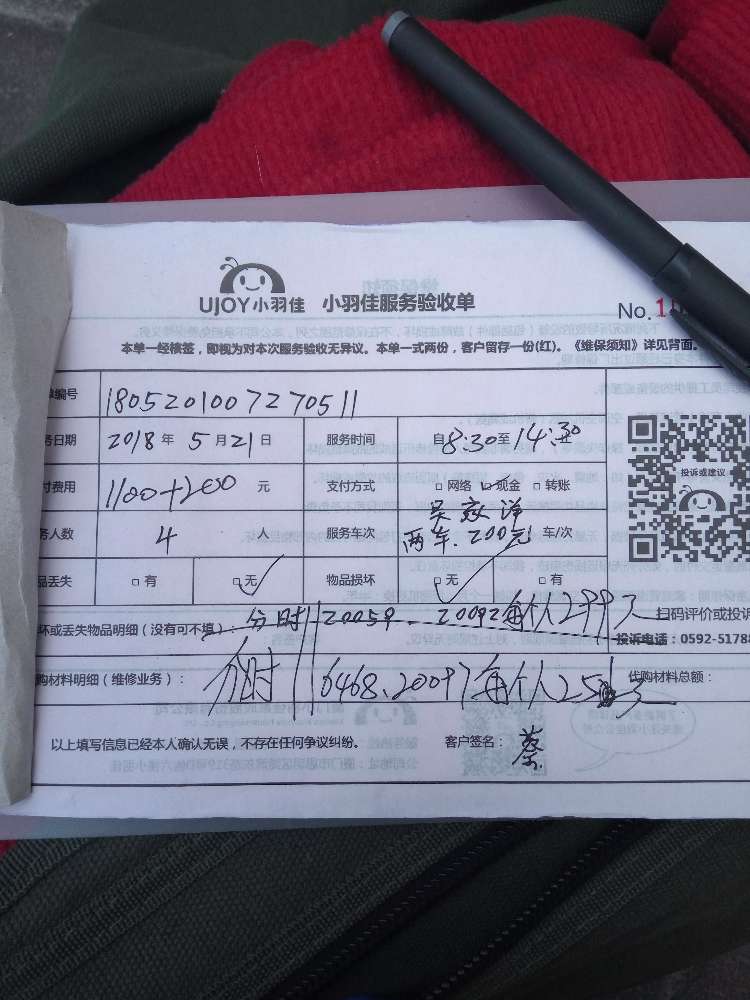 UJOY小羽佳 小羽佳服务验收单
No.1
本单一经核签，即视为对本次服务验收无异议。本单一式两份，客户留存一份(红)。《维保须知》详见背面。
编号 1805201007270511
日期 2018 年 5 月 21 日 服务时间 自 8:30 至 14:30
付费用 1100+200 元 支付方式 □ 网络 ☑ 现金 □ 转账
务人数 4 人 服务车次 两车.200元 车/次
品丢失 □ 有 ☑ 无 物品损坏 ☑ 无 □ 有
投诉或建议
坏或丢失物品明细（没有可不填）： 分时 20059 . 20092 每个人299
扫码评价或投诉
投诉电话：0592-5178
购材料明细（维修业务）： 分时 0468.20097 每个人25
代购材料总额：
以上填写信息已经本人确认无误，不存在任何争议纠纷。 客户签名： 蔡